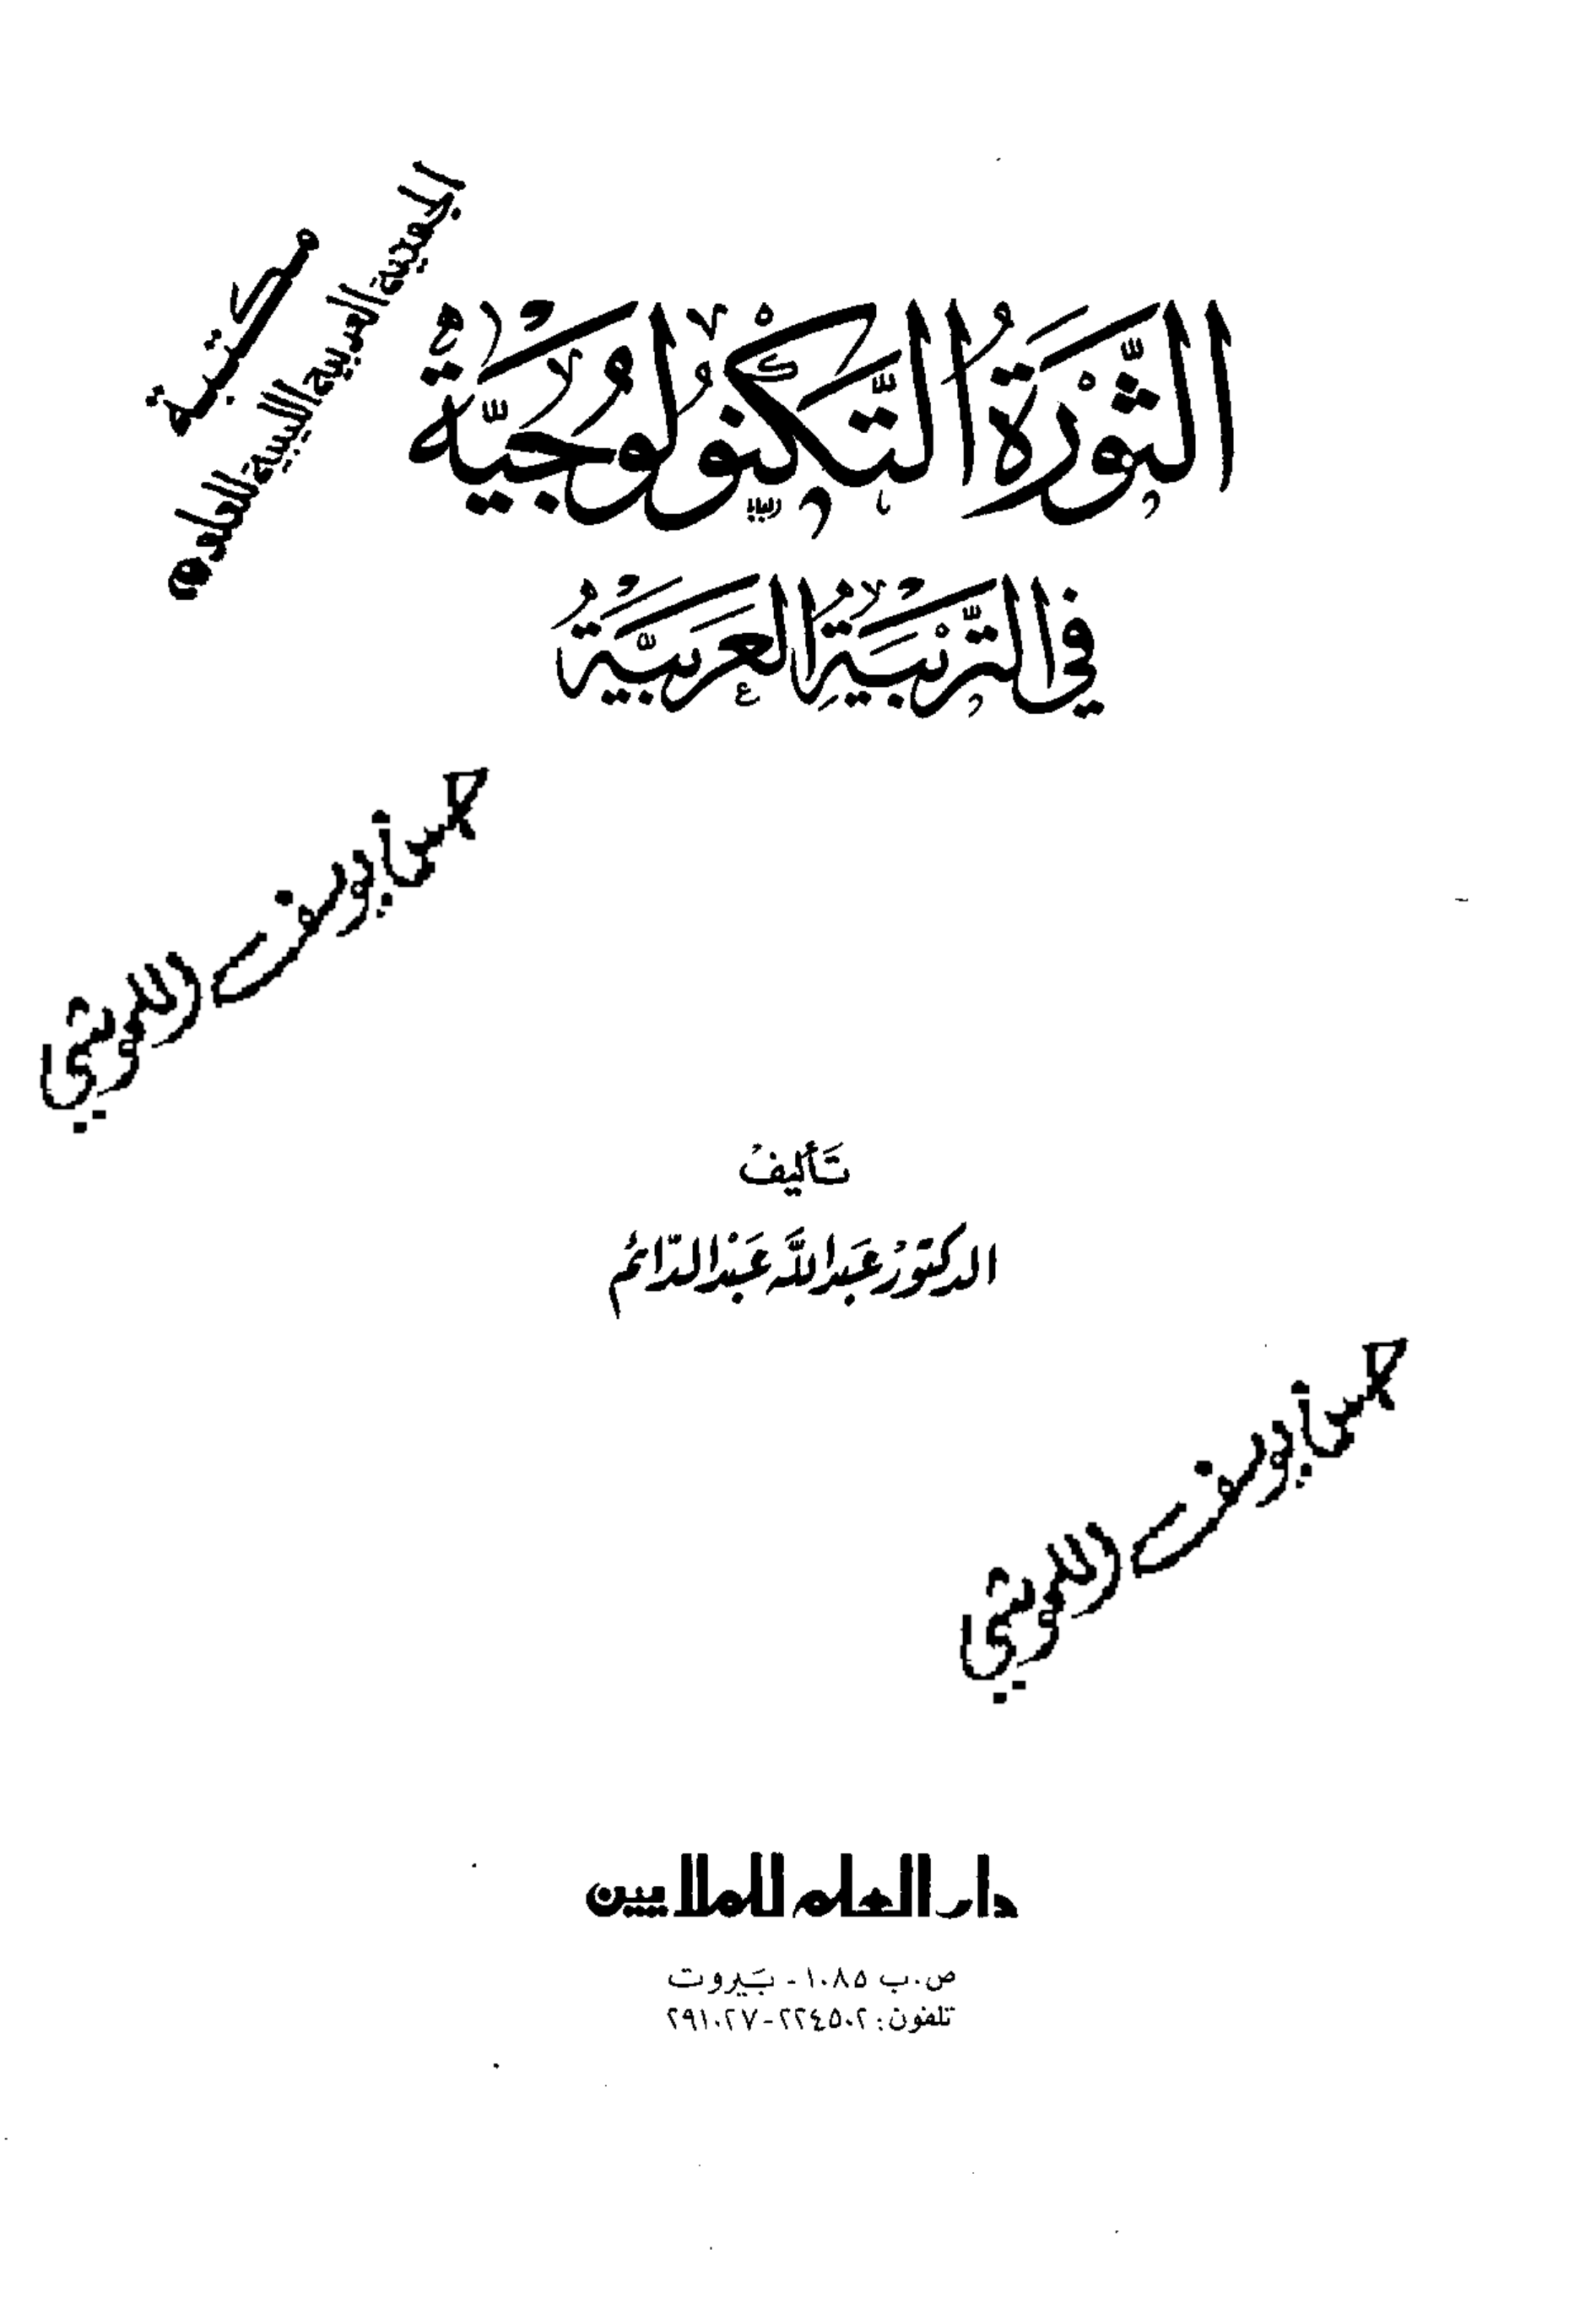 مكتبة
الجمعية العربية الليبية للعلوم
الثَّوْرَةُ التِّكْنُولُوجِيَّة
فِي التَّرْبِيَةِ العَرَبِيَّةِ
تَأليفُ
الدكتورُ عَبدالله عَبْدالدّائم
دار العلم للملايين
ص.ب ١٠٨٥ - بَيروت
تلفون: ٢٢٤٥٠٢-٢٩١٠٢٧